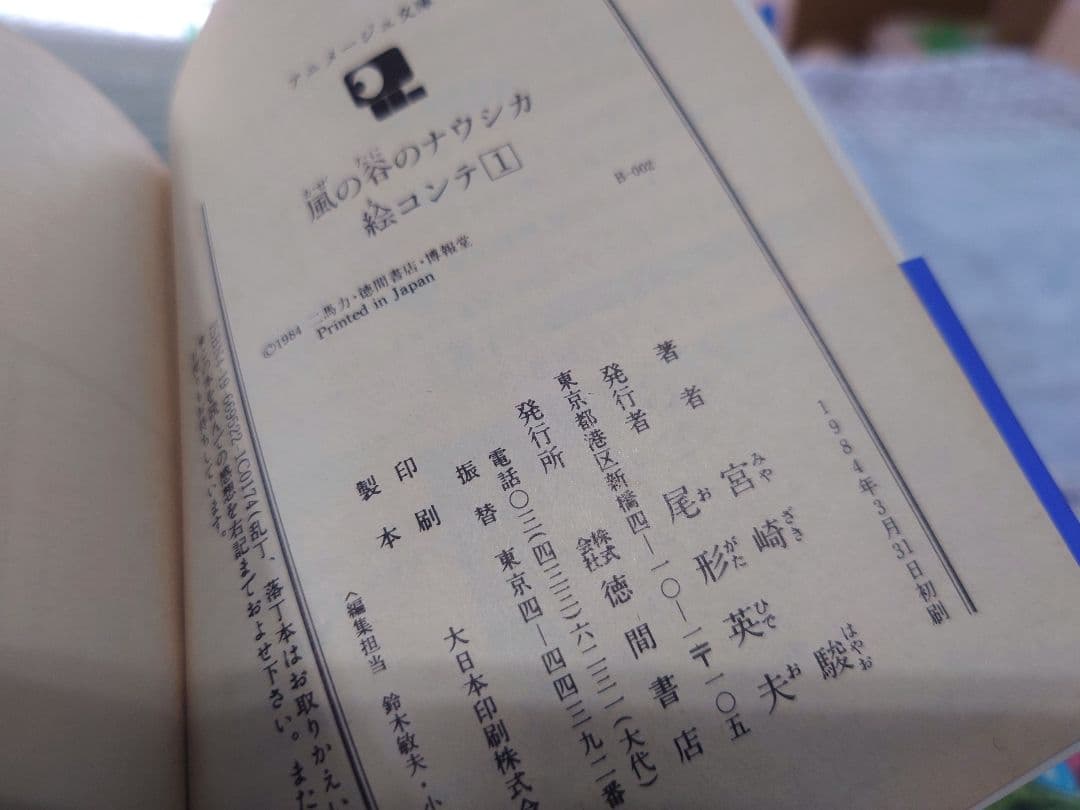 アニメージュ文庫
風の谷のナウシカ
かぜ たに
絵コンテ1
え
B-002
©1984 二馬力・徳間書店・博報堂
Printed in Japan
1984年3月31日初刷
著者 宮崎駿
みや ざき はやお
発行者 尾形英夫
お がた ひで お
東京都港区新橋四—一〇—一〒一〇五
発行所 株式会社徳間書店
電話〇三(四三三)六二三一(大代)
振替 東京四—四四三九二番
印刷
製本 大日本印刷株式会
〈編集担当 鈴木敏夫・小
(乱丁、落丁本はお取りかえい
まおよせ下さい。また
この本を読んでの感想を右記までおよせ下さい。
しています。